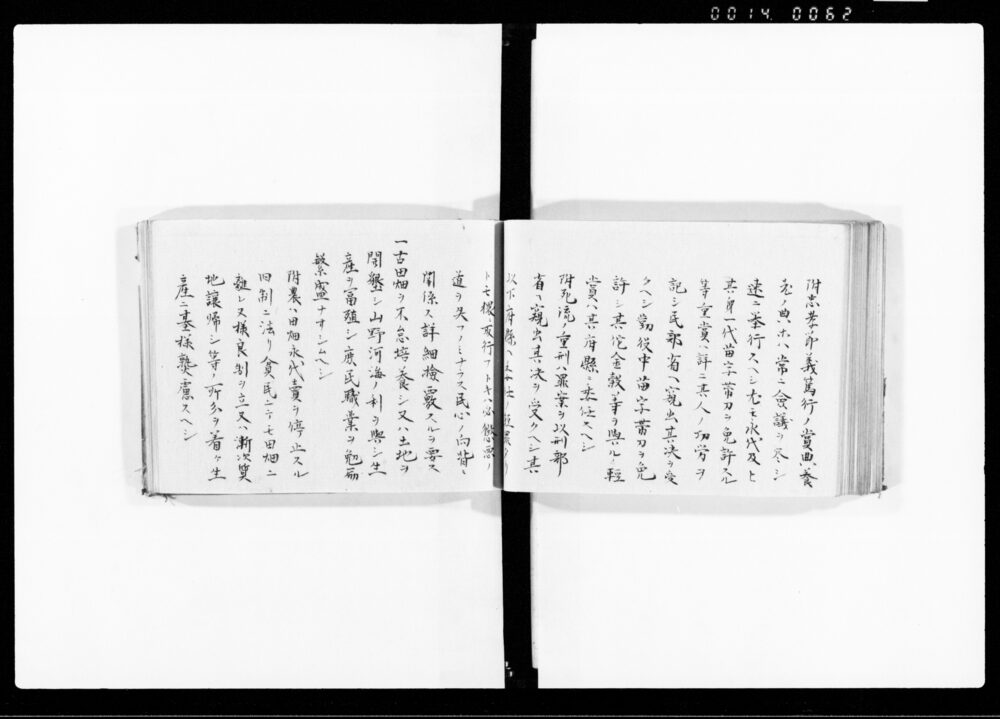 0014 0062
附忠孝節義篤行ノ賞典ハ養
老ノ典ホハ常ニ會議ヲ尽シ
速ニ挙行スヘシ尤モ永代及ヒ
其身一代苗字帯刀ヲ免許スル
等重賞ハ詳ニ其人ノ功労ヲ
記シ民部省ヘ窺出其決ヲ受
クヘシ勤役中苗字帯刀ヲ免
許シ其佗金穀等ヲ與ル軽
賞ハ其府縣ニ委任スヘシ
附死流ノ重刑ハ罪業ヲ以刑部
省ヘ窺出其決ヲ受クヘシ其
以下府縣ヘ
トモ
道ヲ失フノミナラス民心ノ向背ニ
関係ス詳細檢覈スルヲ要ス
一古田畑ヲ不怠培養シ又ハ土地ヲ
開墾シ山野河海ノ利ヲ興シ生
産ヲ富殖シ庶民職業ヲ勉励
繁盛ナサシムヘシ
附農ハ田畑永代賣ヲ停止スル
旧制ニ法リ貧民ニテモ田畑ニ
離レス様良制ヲ立又ハ漸次質
地譲帰シ等ノ所分ヲ着ケ生
産ニ基様熟慮スヘシ